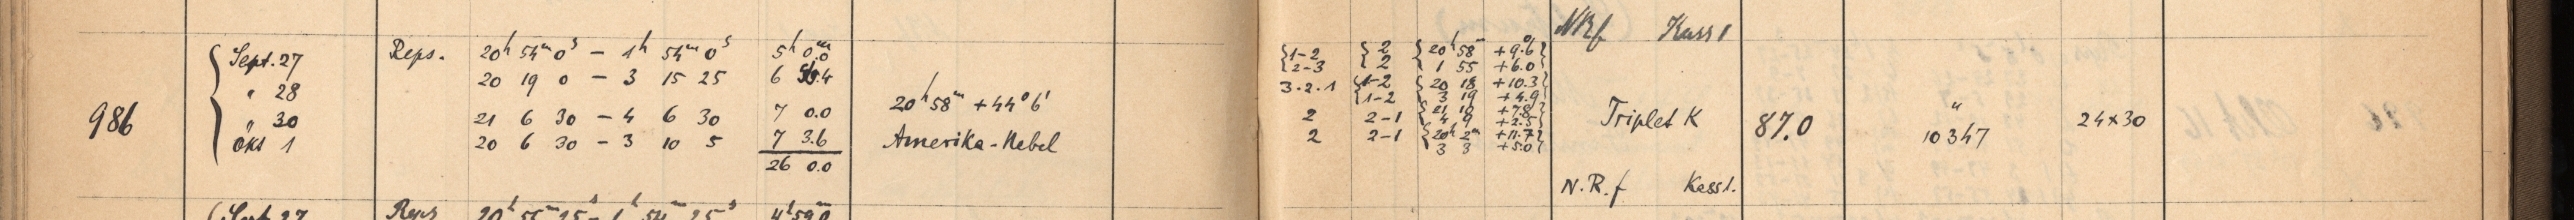 NRf Kassl
Sept. 27 Reps. 20h 54m 0s – 1h 54m 0s 5h 0m.0 1-2 2 20h 58m +9°.6
2-3 2 1 55 +6.0
" 28 20 19 0 – 3 15 25 6 56.4 3.2.1 1-2 20 18 +10.3
1-2 3 19 +4.9
986 " 30 21 6 30 – 4 6 30 7 0.0 20h 58m +44° 6' 2 2-1 21 10 +7.8 Triplet K 87.0 " 24×30
4 9 +2.5
Okt 1 20 6 30 – 3 10 5 7 3.6 Amerika-Nebel 2 2-1 20h 2m +11.7 10347
3 3 +5.0
26 0.0
N.R.f Kassl.
Sept. 27 Reps 20h 55m 25s – 1h 54m 25s 4h 59m.0